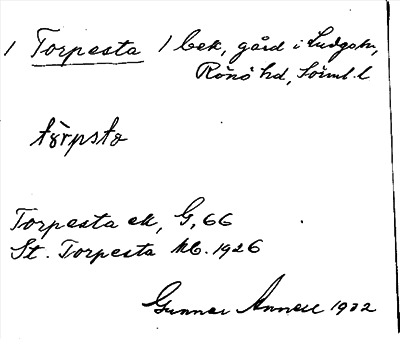 / Torpesta / bek, gård i Ludgo sn,
Rönö hd, Sörml. l
tòrpsta
Torpesta ek, G, 66
St. Torpesta kb. 1926
Gunnar Annell 1932